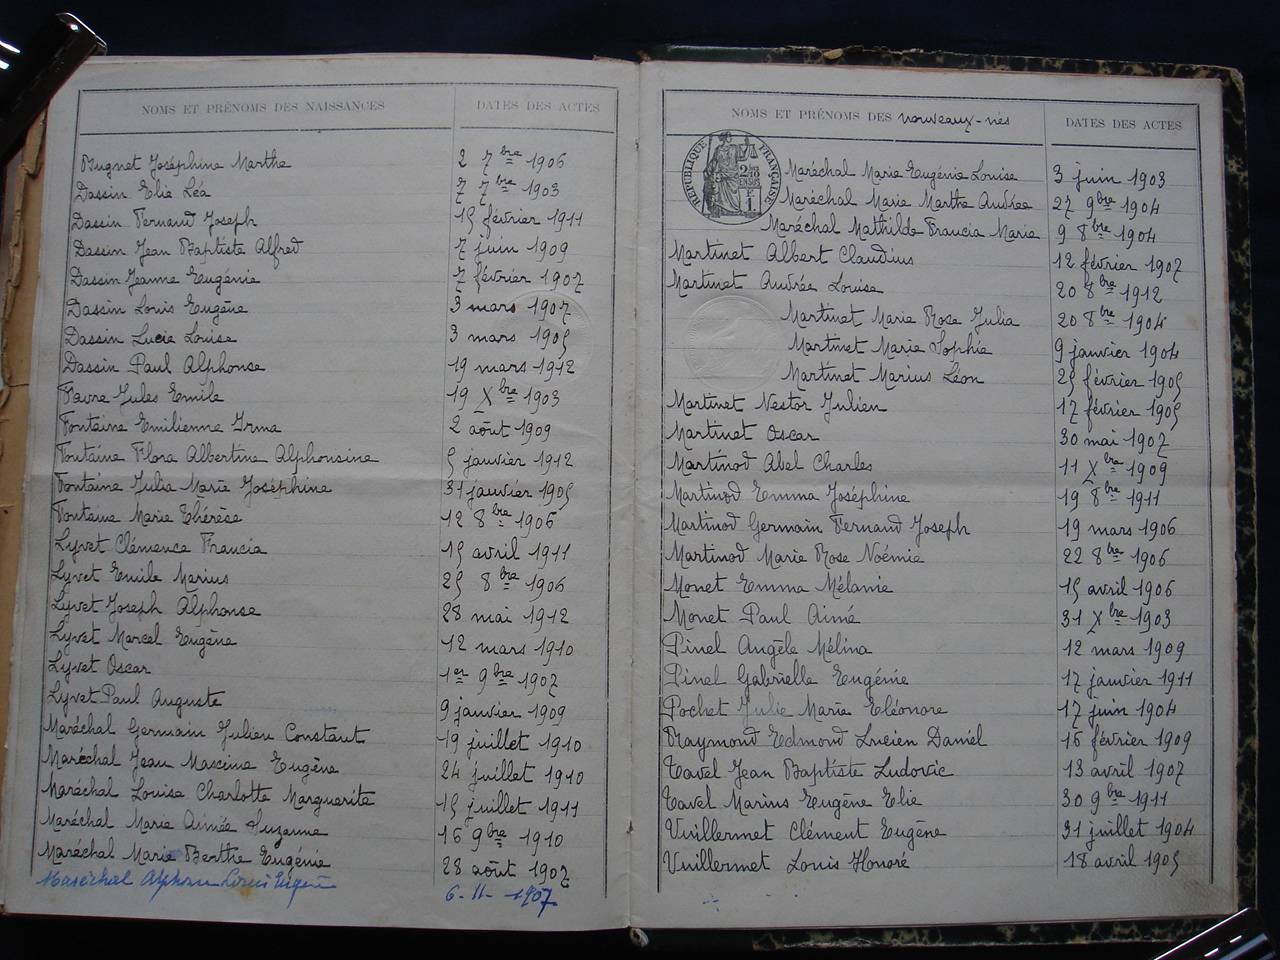 NOMS ET PRÉNOMS DES NAISSANCES DATES DES ACTES
Bugnet Joséphine Marthe 2 7bre 1906
Dassin Elie Léa 7 7bre 1903
Dassin Fernand Joseph 15 février 1911
Dassin Jean Baptiste Alfred 7 juin 1909
Dassin Jeanne Eugénie 7 février 1907
Dassin Louis Eugène 3 mars 1907
Dassin Lucie Louise 3 mars 1905
Dassin Paul Alphonse 19 mars 1912
Favre Jules Emile 19 Xbre 1903
Fontaine Emilienne Irma 2 août 1909
Fontaine Flora Albertine Alphonsine 5 janvier 1912
Fontaine Julia Marie Joséphine 31 janvier 1905
Fontaine Marie Thérèse 12 8bre 1906
Lyvet Clémence Francia 15 avril 1911
Lyvet Emile Marius 25 8bre 1906
Lyvet Joseph Alphonse 28 mai 1912
Lyvet Marcel Eugène 12 mars 1910
Lyvet Oscar 1er 9bre 1907
Lyvet Paul Auguste 9 janvier 1909
Maréchal Germain Julien Constant 19 juillet 1910
Maréchal Jean Maxime Eugène 24 juillet 1910
Maréchal Louise Charlotte Marguerite 15 juillet 1911
Maréchal Marie Aimée Suzanne 16 9bre 1910
Maréchal Marie Berthe Eugénie 28 août 1907
Maréchal Alphonse Louis Eugène 6-11-1907
NOMS ET PRÉNOMS DES nouveaux-nés DATES DES ACTES
RÉPUBLIQUE FRANÇAISE
Maréchal Marie Eugénie Louise 3 juin 1903
Maréchal Marie Marthe Andrée 27 9bre 1904
Maréchal Mathilde Francia Marie 9 8bre 1904
Martinet Albert Claudius 12 février 1907
Martinet Andrée Louise 20 8bre 1912
Martinet Marie Rose Julia 20 8bre 1904
Martinet Marie Sophie 9 janvier 1904
Martinet Marius Léon 25 février 1905
Martinet Nestor Julien 17 février 1905
Martinet Oscar 30 mai 1907
Martinod Abel Charles 11 Xbre 1909
Martinod Emma Joséphine 19 8bre 1911
Martinod Germain Fernand Joseph 19 mars 1906
Martinod Marie Rose Noémie 22 8bre 1906
Monet Emma Mélanie 15 avril 1906
Monet Paul Aimé 31 Xbre 1903
Pinel Angèle Mélina 12 mars 1909
Pinel Gabrielle Eugénie 17 janvier 1911
Pochet Julie Marie Eléonore 17 juin 1904
Raymond Edmond Lucien Daniel 16 février 1909
Tavel Jean Baptiste Ludovic 13 avril 1907
Tavel Marius Eugène Elie 30 9bre 1911
Vuillermet Clément Eugène 31 juillet 1904
Vuillermet Louis Honoré 18 avril 1905